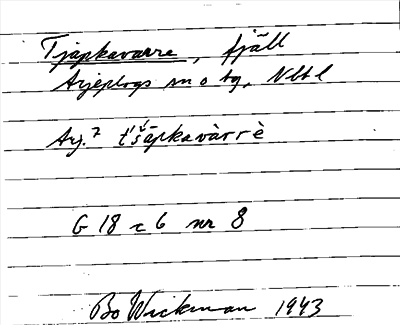 Tjapkavarre, fjäll
Arjeplogs sn o tg, Nbtl
Arj.7 t'š́āpkavàrrè
G 18 c 6 nr 8
Bo Wickman 1943